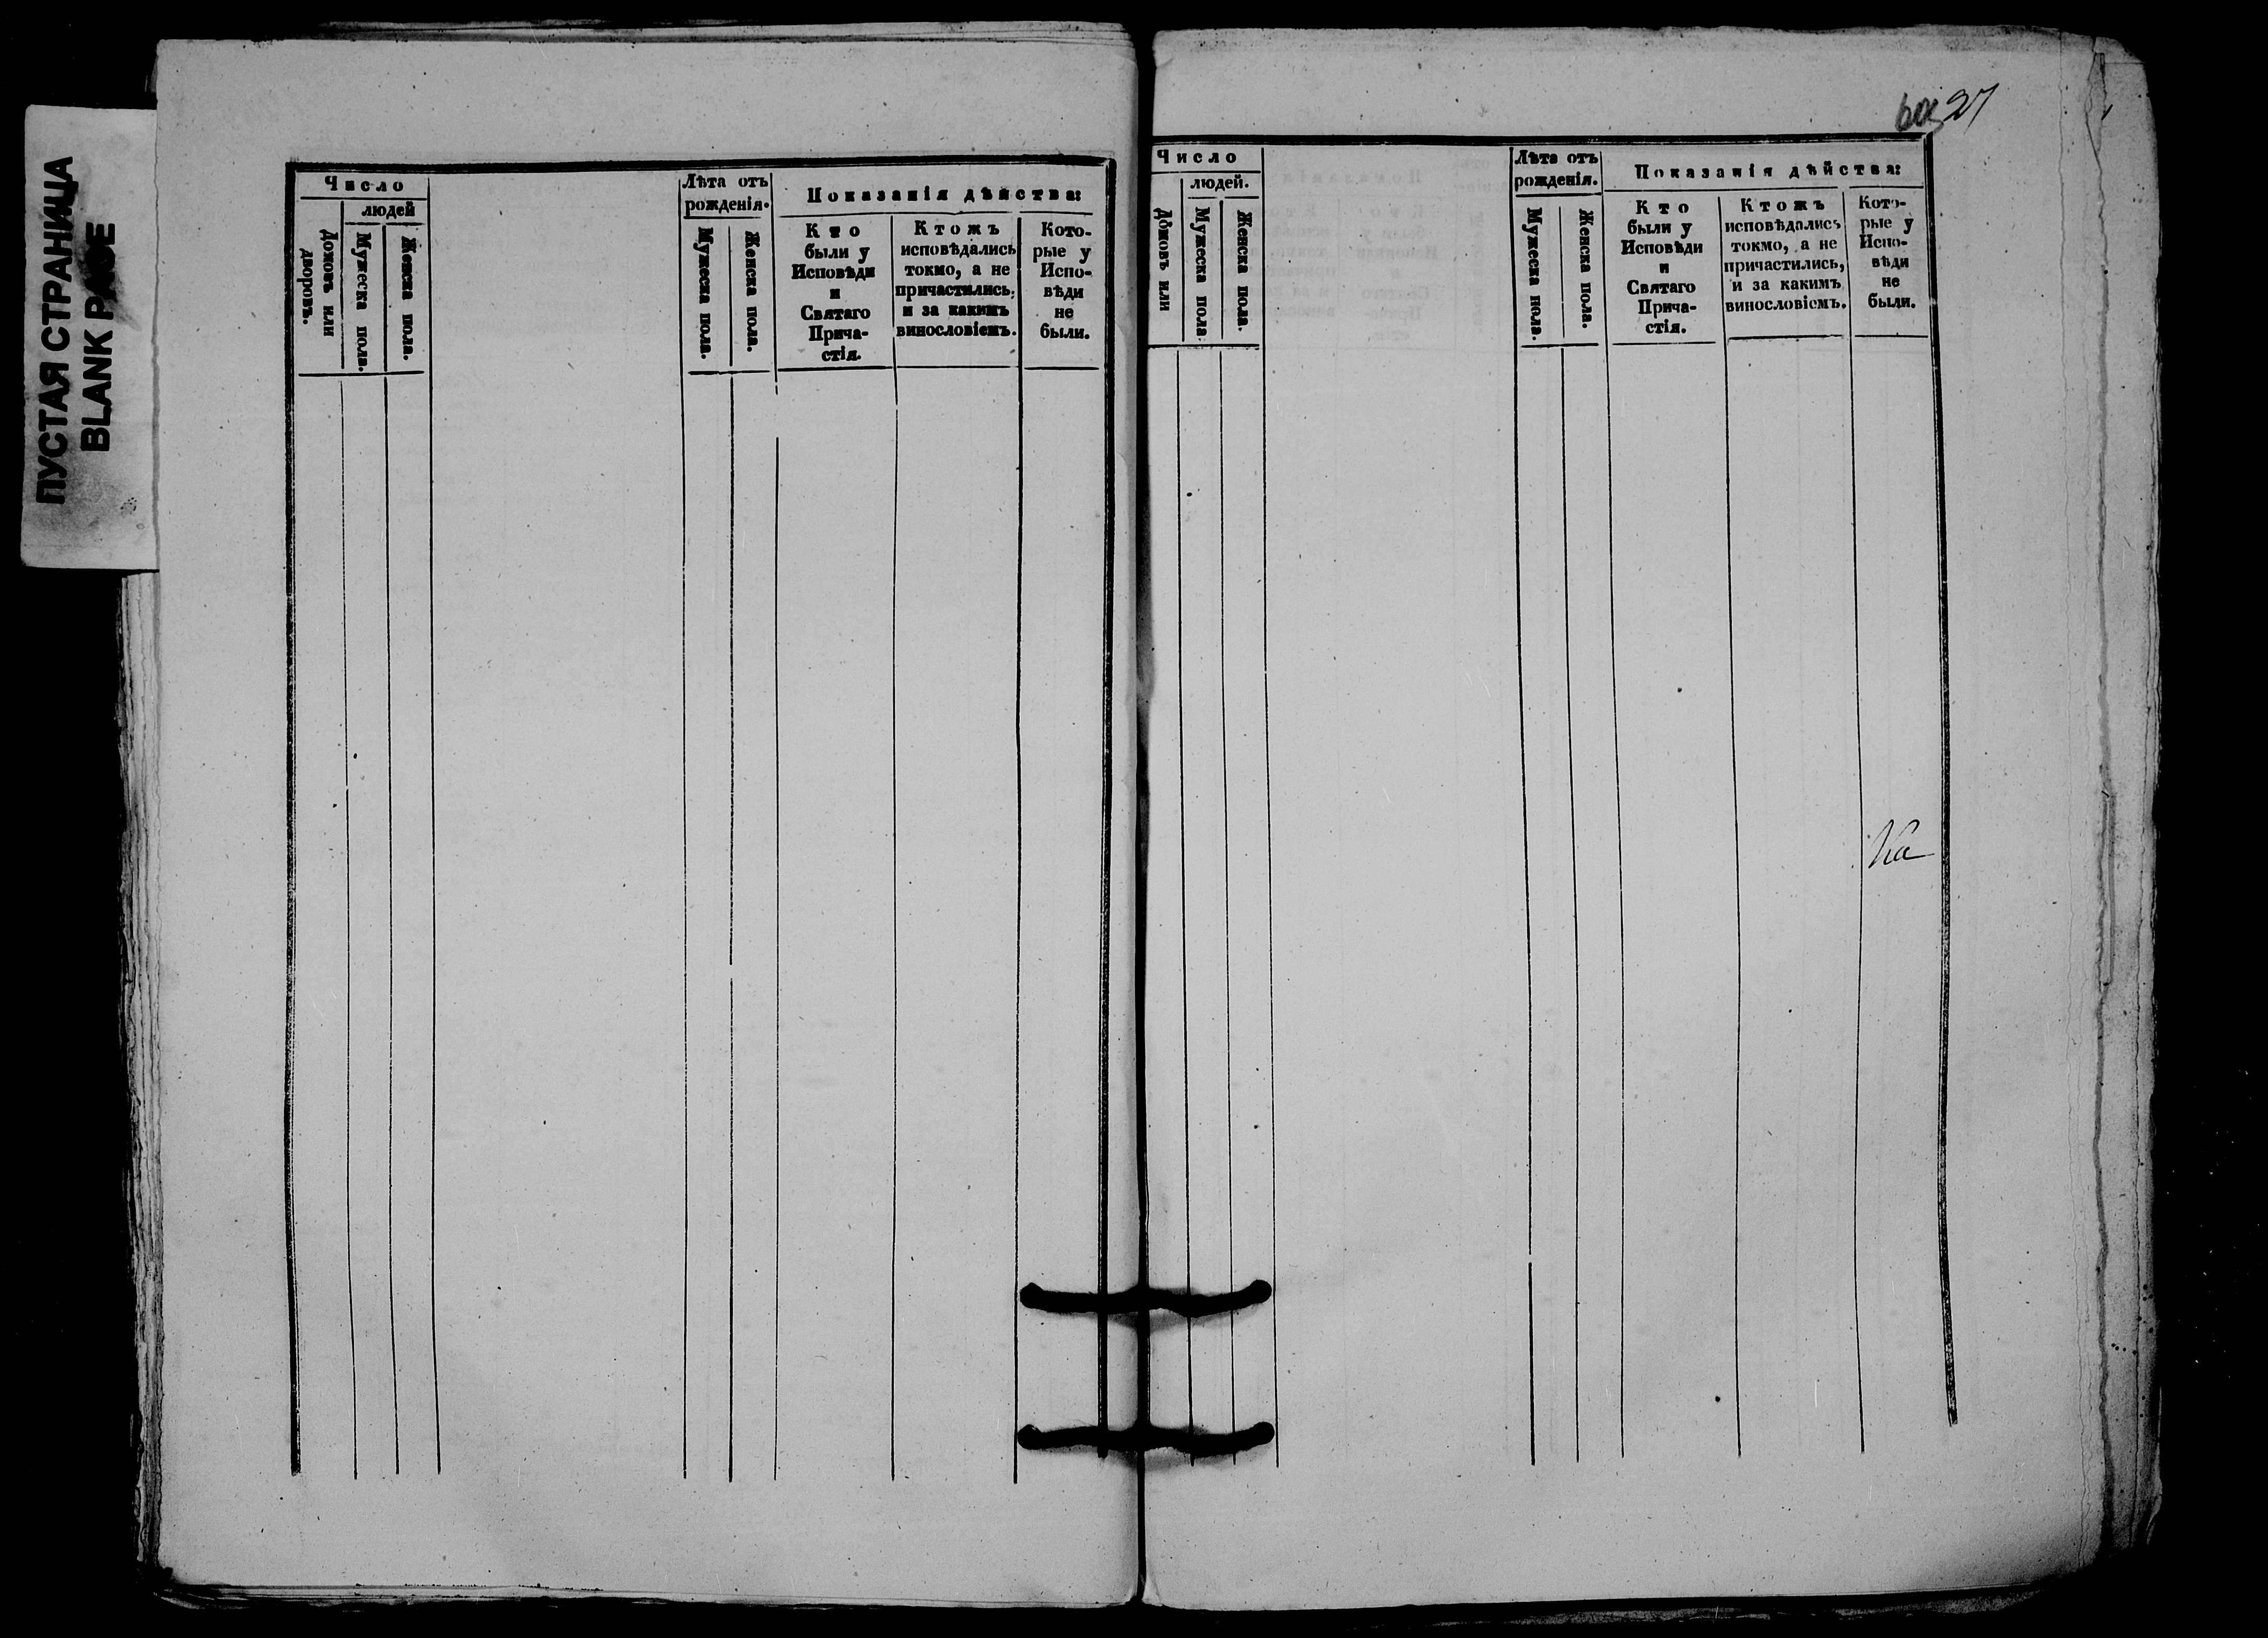 ПУСТАЯ СТРАНИЦА
BLANK PAGE
Число
людей
Домовъ или
дворовъ.
Мужеска пола.
Женска пола.
Лѣта отъ
рожденія.
Мужеска пола.
Женска пола.
Показанія дѣйства:
Кто
были у
Исповѣди
и
Святаго
Прича-
стія.
Ктожъ
исповѣдались
токмо, а не
причастились,
и за какимъ
винословіемъ.
Кото-
рые у
Испо-
вѣди
не
были.
27
Число
людей.
Домовъ или
Мужеска пола
Женска пола.
Лѣта отъ
рожденія.
Мужеска пола.
Женска пола.
Показанія дѣйства:
Кто
были у
Исповѣди
и
Святаго
Прича-
стія.
Ктожъ
исповѣдались
токмо, а не
причастились,
и за какимъ
винословіемъ.
Кото-
рые у
Испо-
вѣди
не
были.